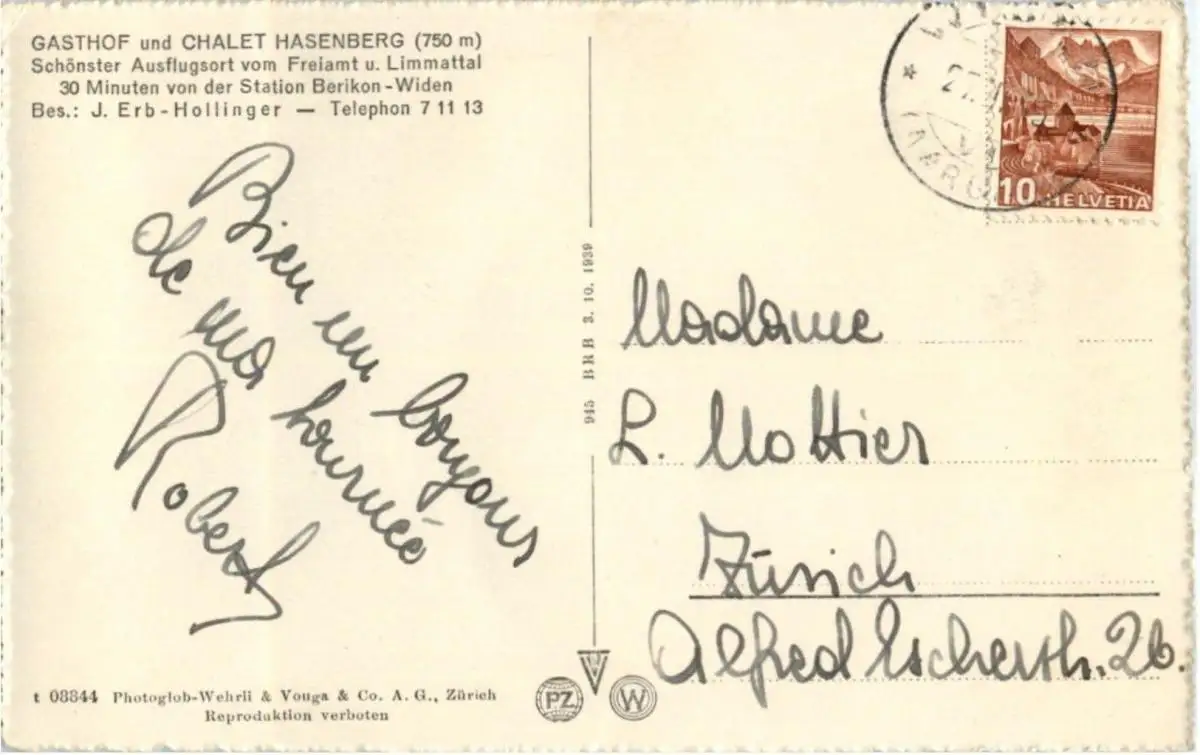 GASTHOF und CHALET HASENBERG (750 m)
Schönster Ausflugsort vom Freiamt u. Limmattal
30 Minuten von der Station Berikon-Widen
Bes.: J. Erb-Hollinger — Telephon 7 11 13
Bien un
de ma tournée
Robert
945 BRB 3. 10. 1939
10 HELVETIA
Madame
L. Mottier
Zürich
Alfred Escherstr. 26.
t 08844 Photoglob-Wehrli & Vouga & Co. A. G., Zürich
Reproduktion verboten
PZ
W